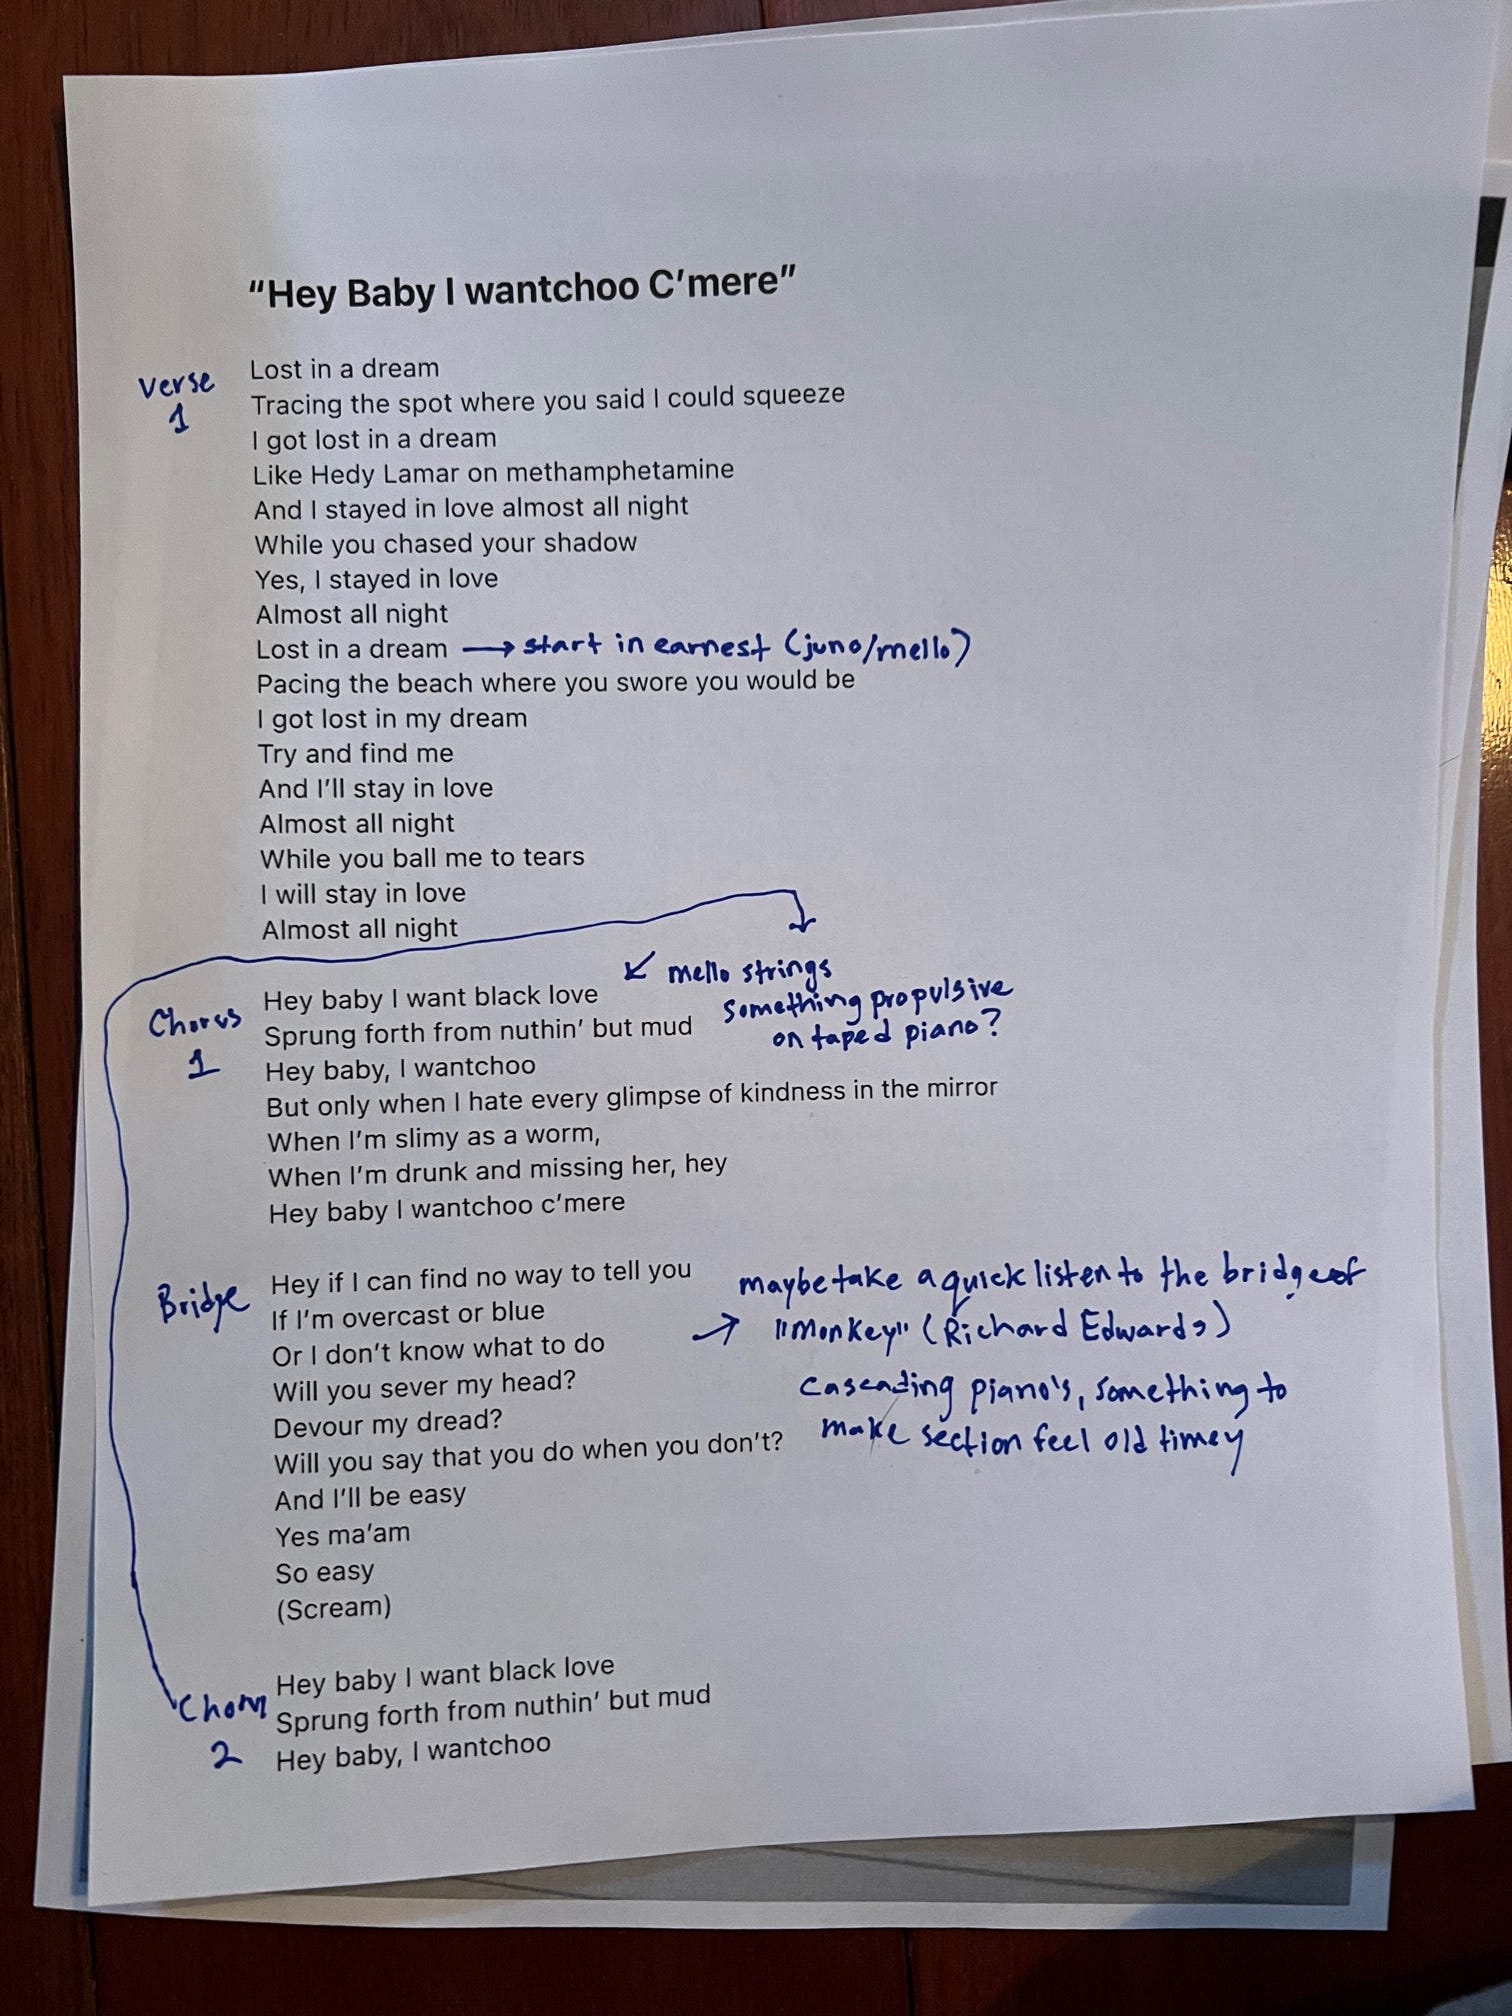 "Hey Baby I wantchoo C'mere"
Verse
1
Lost in a dream
Tracing the spot where you said I could squeeze
I got lost in a dream
Like Hedy Lamar on methamphetamine
And I stayed in love almost all night
While you chased your shadow
Yes, I stayed in love
Almost all night
Lost in a dream → start in earnest (juno/mello)
Pacing the beach where you swore you would be
I got lost in my dream
Try and find me
And I'll stay in love
Almost all night
While you ball me to tears
I will stay in love
Almost all night
Chorus
1
Hey baby I want black love
Sprung forth from nuthin' but mud
Hey baby, I wantchoo
But only when I hate every glimpse of kindness in the mirror
When I'm slimy as a worm,
When I'm drunk and missing her, hey
Hey baby I wantchoo c'mere
mello strings
something propulsive
on taped piano?
Bridge
Hey if I can find no way to tell you
If I'm overcast or blue
Or I don't know what to do
Will you sever my head?
Devour my dread?
Will you say that you do when you don't?
And I'll be easy
Yes ma'am
So easy
(Scream)
maybe take a quick listen to the bridge of
→ "Monkey" (Richard Edwards)
cascading piano's, something to
make section feel old timey
Chorus
2
Hey baby I want black love
Sprung forth from nuthin' but mud
Hey baby, I wantchoo